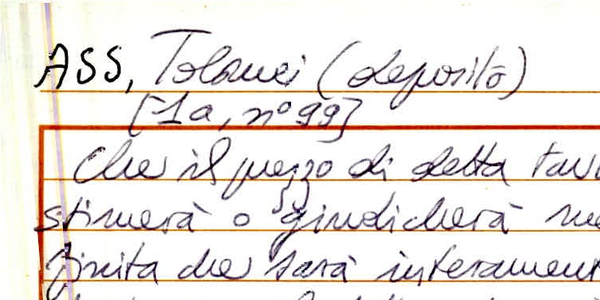 ASS, Tolomei (deposito)
[1a, n° 99]
Che il prezzo di detta tav
stimerà o giudicherà
finita che sarà interament